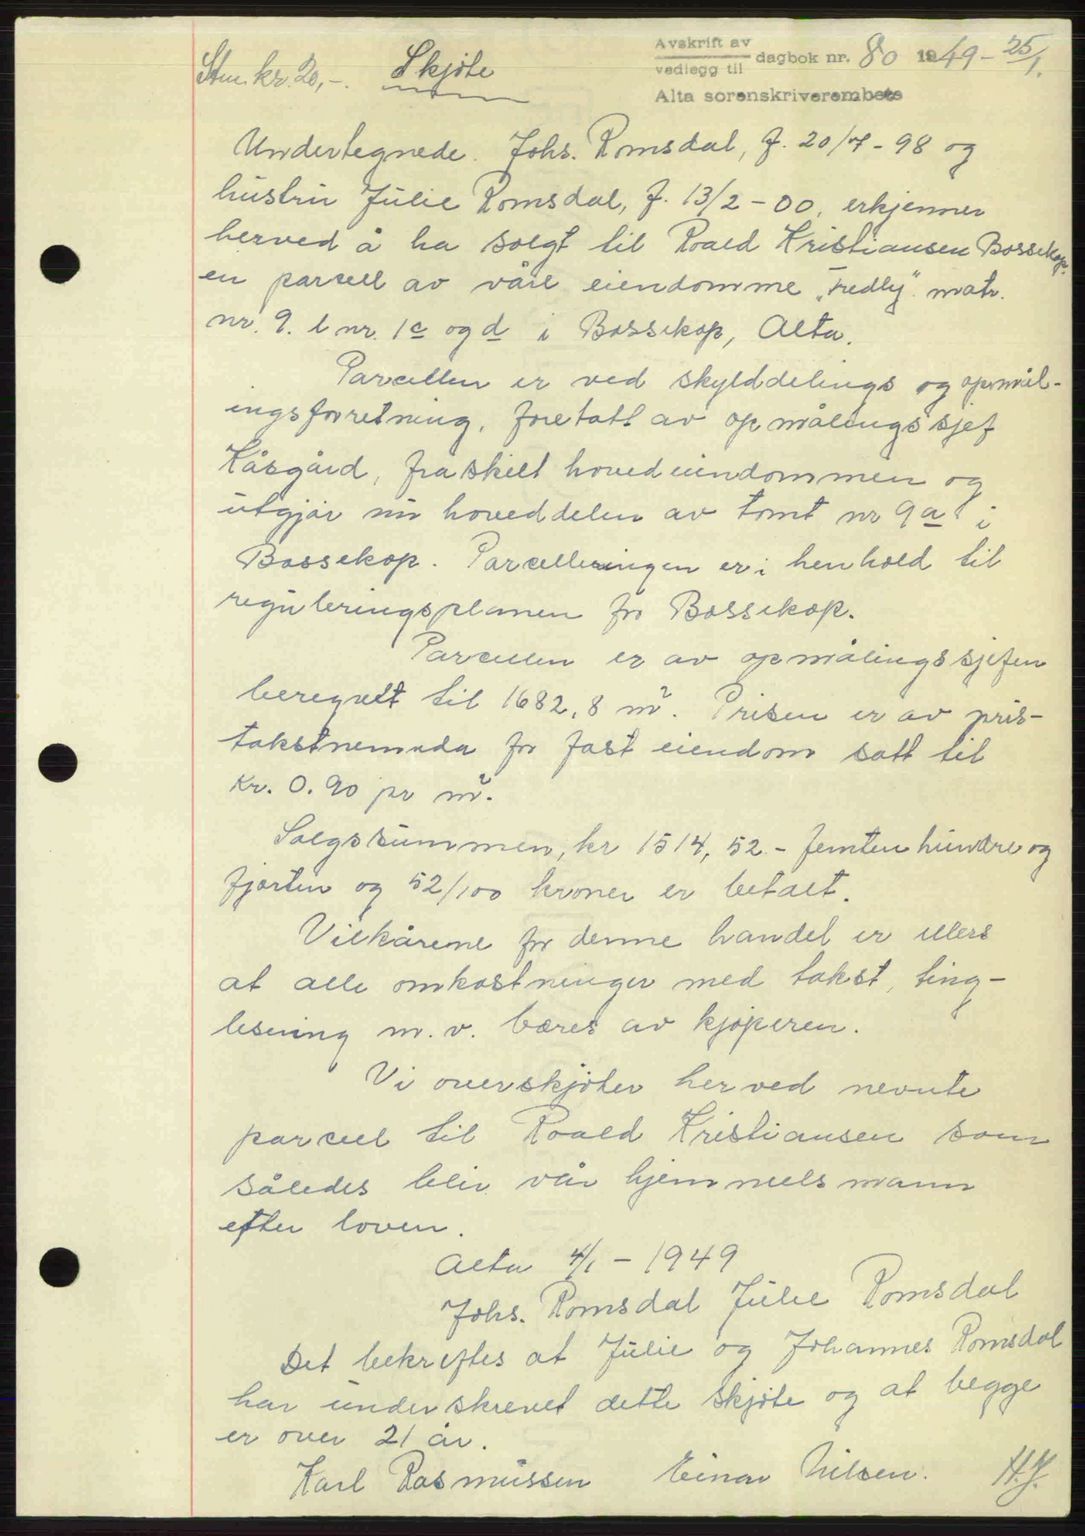 Avskrift av
vedlegg til dagbok nr. 80 1949 - 25/1.
Alta sorenskriverembete
Stm. kr. 20,-. Skjøte
Undertegnede. Johs. Romsdal, f. 20/7 - 98 og
hustru Julie Romsdal, f. 13/2 - 00, erkjenner
herved å ha solgt til Roald Kristiansen Bossekop.
en parsell av våre eiendomme „Fredly" matr.
nr. 9. l nr. 1c og d i Bossekop, Alta.
Parcellen er ved skylddelings og opmål-
ingsforretning, foretatt av opmålingssjef
Kåsgård, fraskilt hovedeiendommen og
utgjør nu hoveddelen av tomt nr 9a i
Bossekop. Parcelleringen er i henhold til
reguleringsplanen for Bossekop.
Parcellen er av opmålingssjefen
beregnet til 1682,8 m². Prisen er av pris-
takstnemnda for fast eiendom satt til
kr. 0.90 pr m².
Salgssummen, kr 1514,52 - femtenhundre og
fjorten og 52/100 kroner er betalt.
Vilkårene for denne handel er ellers
at alle omkostninger med takst, ting-
lesning m.v. bæres av kjøperen.
Vi overskjøter herved nevnte
parcell til Roald Kristiansen som
således blir vår hjemmelsmann
efter loven.
Alta 4/1 - 1949
Johs. Romsdal Julie Romsdal
Det bekreftes at Julie og Johannes Romsdal
har underskrevet dette skjøte og at begge
er over 21 år.
Karl Rasmussen Einar Nilsen. H.J.